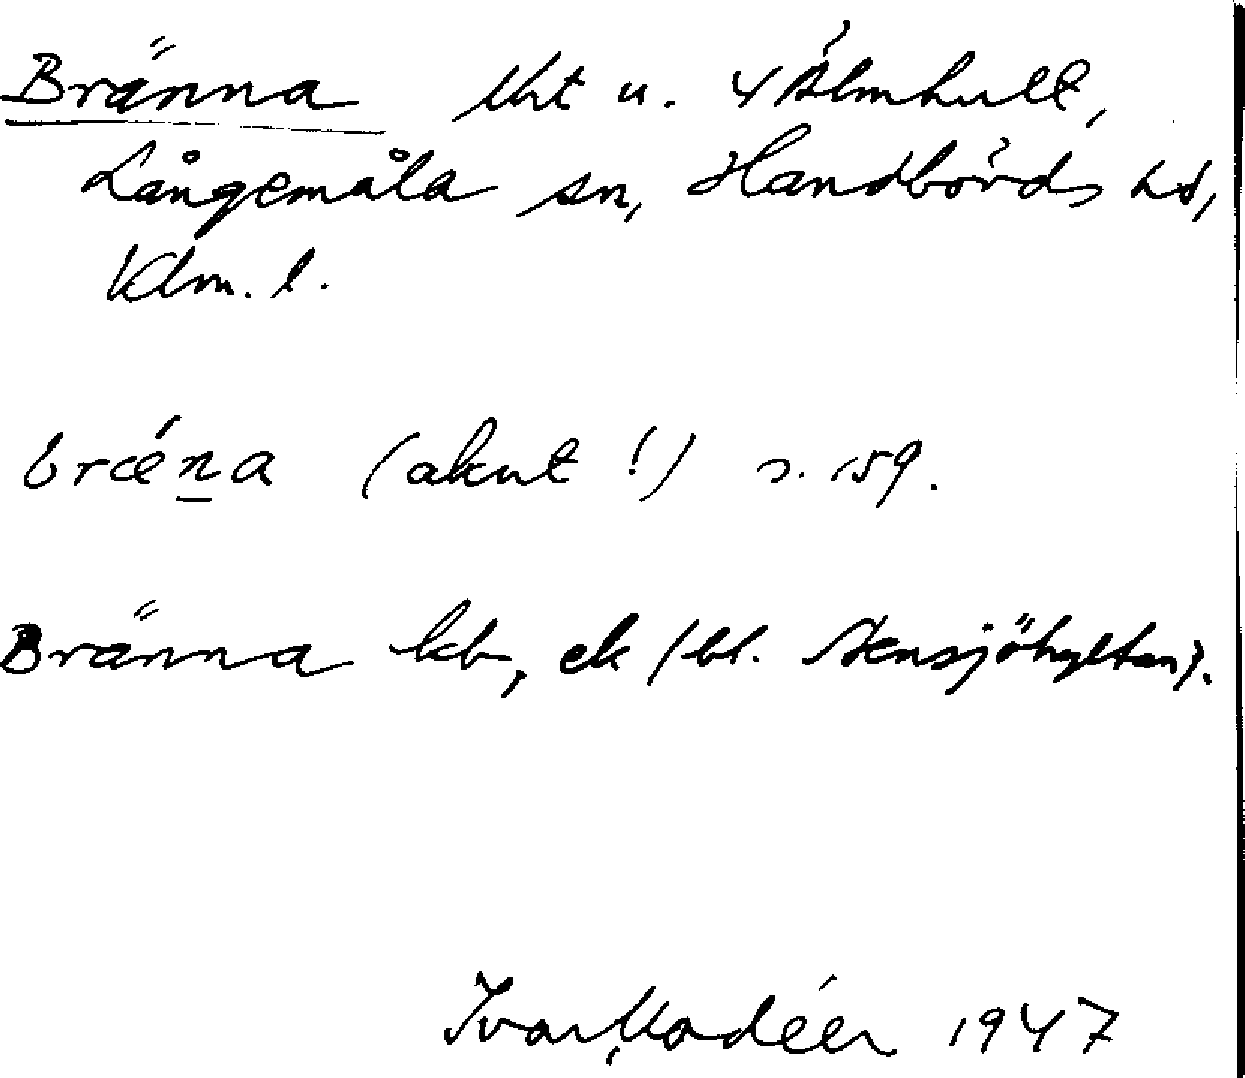 Bränna lht u. 4 Älmhult,
Långemåla sn, Handbörds hd,
Klm. l.
brǽna (akut!) s. 159.
Bränna kb, ek (bl. Stensjöhyltan).
Ivar Modéer 1947